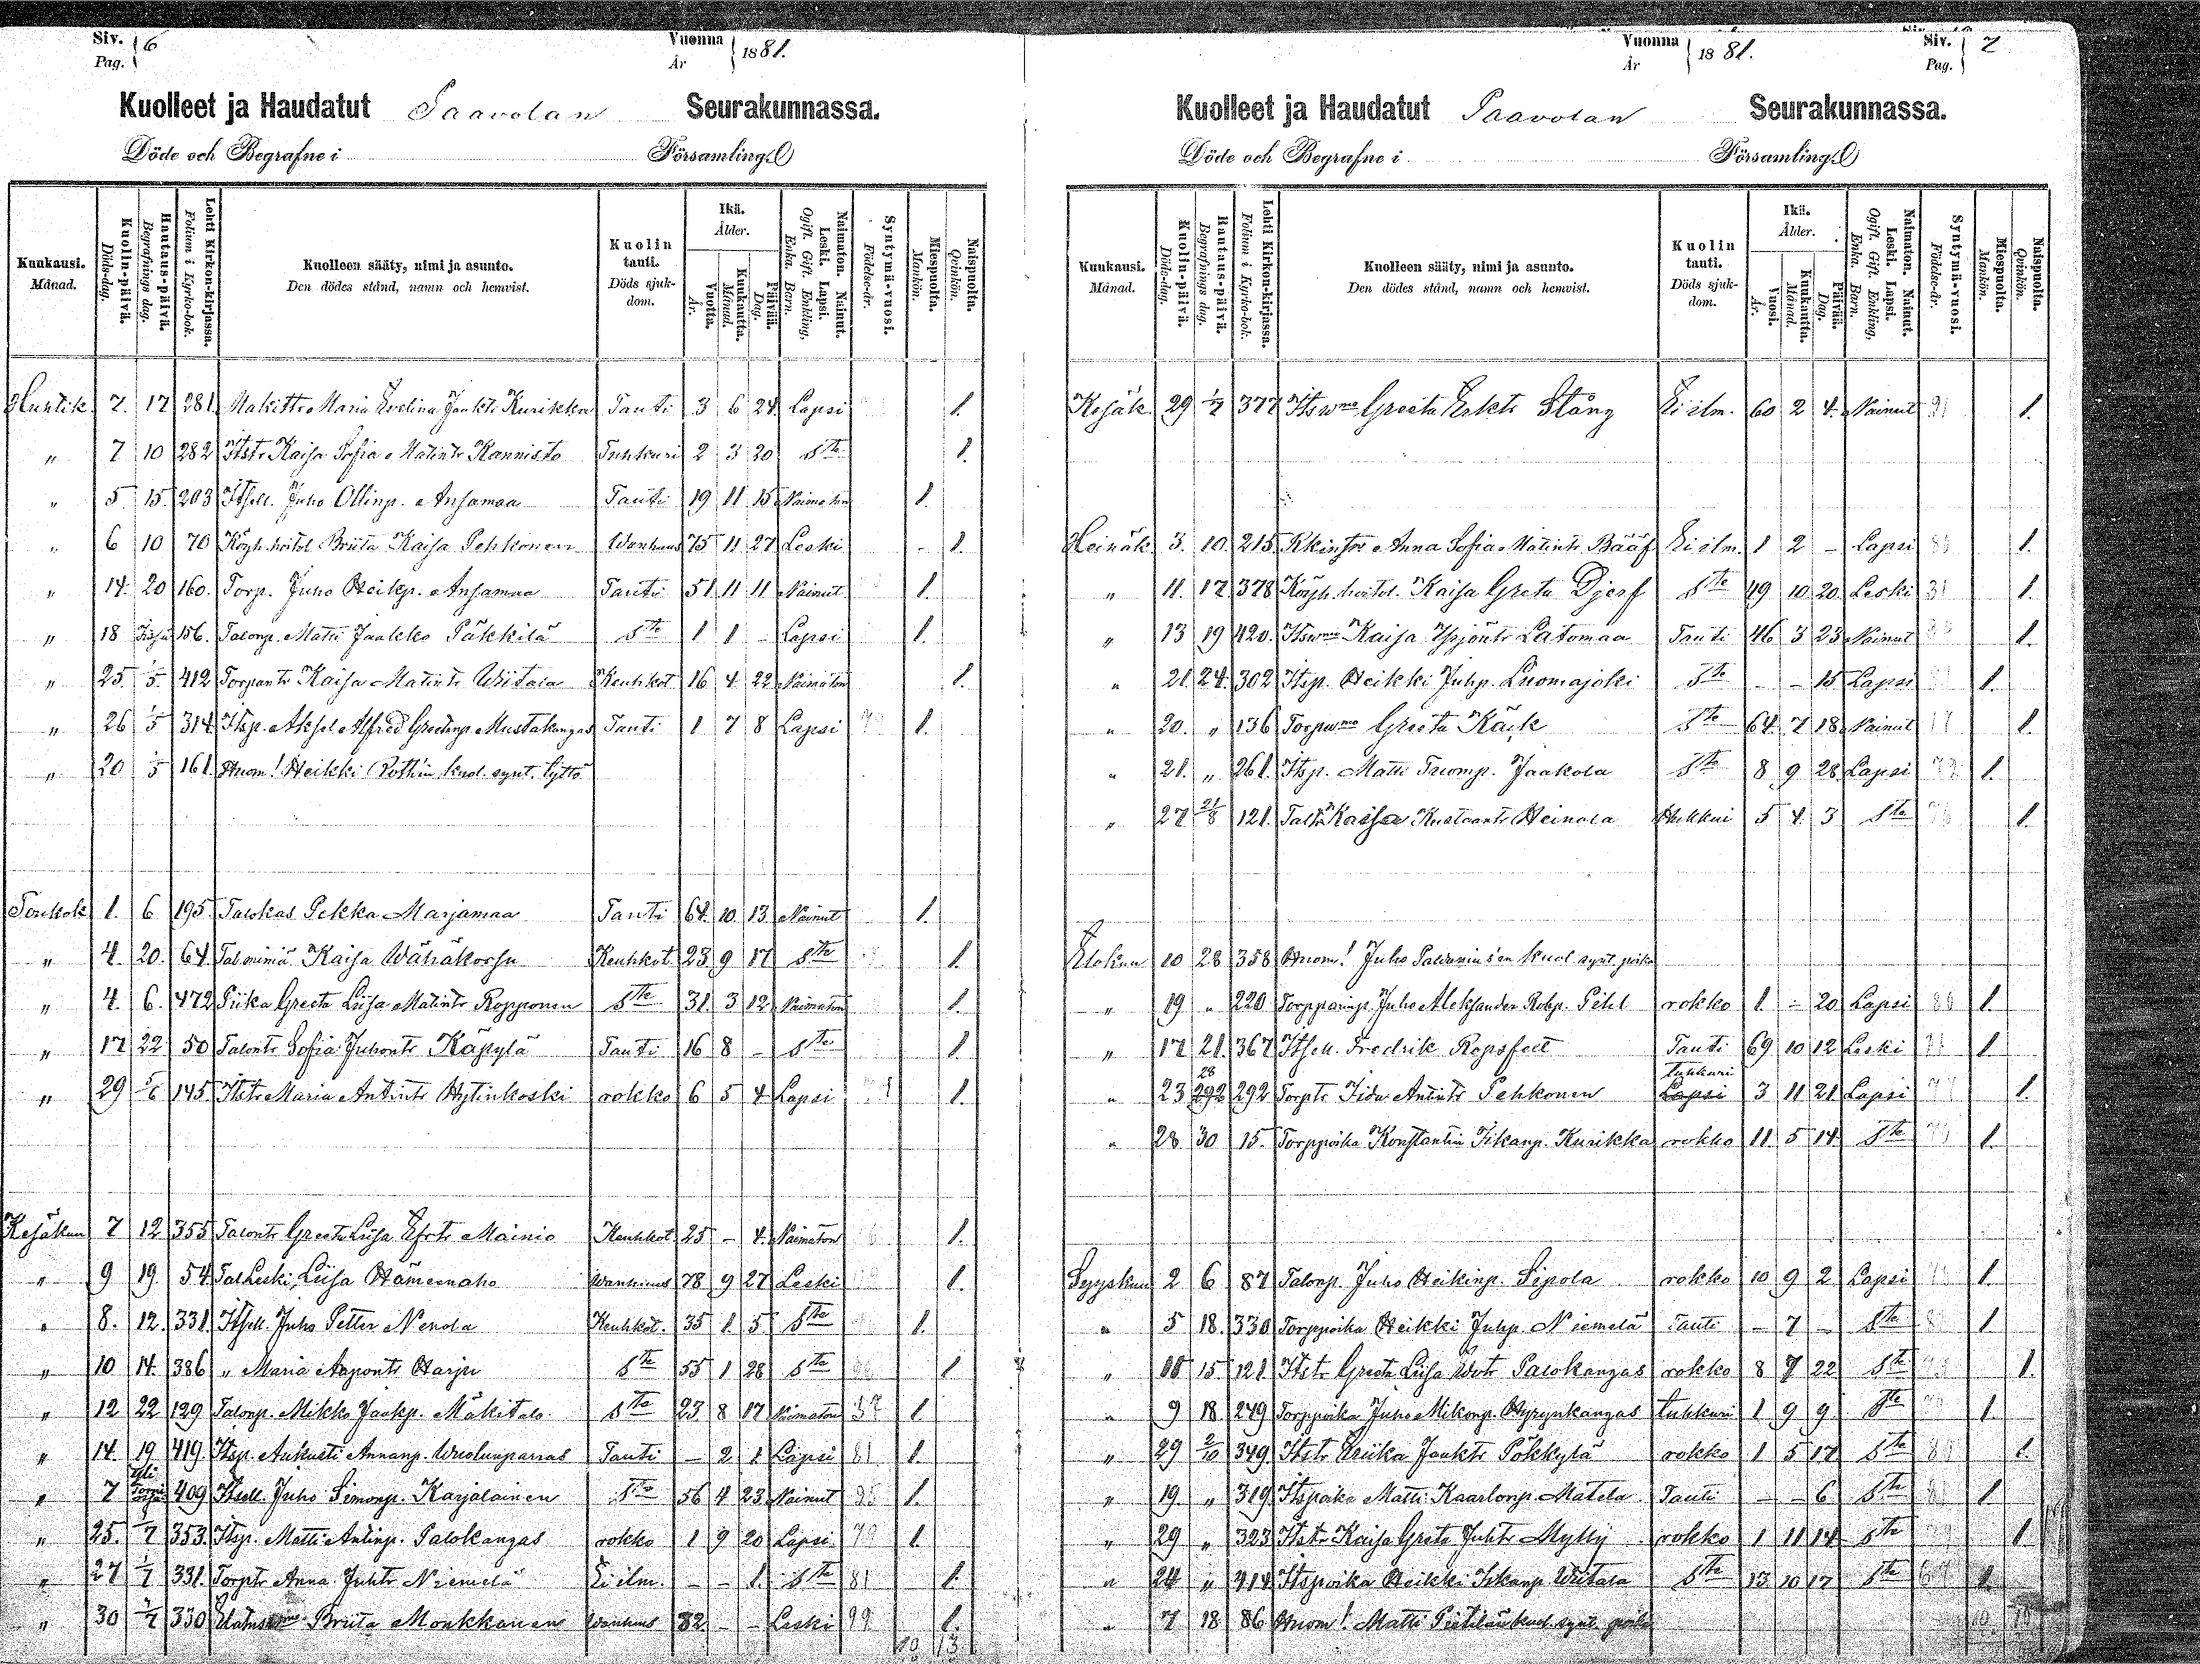 Siv. Pag. 6 Vuonna År 1881.
Kuolleet ja Haudatut Paavolan Seurakunnassa.
Döde och Begrafne i Församling
Kuukausi. Månad. Kuolin-päivä. Döds-dag. Hautaus-päivä. Begrafnings dag. Lehti Kirkon-kirjassa. Folium i Kyrko-bok. Kuolleen sääty, nimi ja asunto. Den dödes stånd, namn och hemvist. Kuolin tauti. Döds sjuk-dom. Ikä. Ålder. Vuotta. År. Kuukautta. Månad. Päivää. Dag. Naimaton. Nainut. Leski. Lapsi. Ogift. Gift. Enkling, Enka. Barn. Syntymä-vuosi. Födelse-år. Miespuolta. Mankön. Naispuolta. Qvinkön.
Huhtik. 7. 17 281. Mäkittr. Maria Evelina Jaakktr Kurikka Tauti 3 6 24. Lapsi 1.
" 7 10 282 Itstr Kaisa Sofia Matintr Kannisto Tuhkuri 2 3 20 Dto 1.
" 5 15 203 Itsell. Juho Ollinp. Ansamaa Tauti 19 11 15 Naimaton 1.
" 6 10 70 Köyh.hoitol Briita Kaisa Pehkonen Wanhuus 75 11 27 Leski 1.
" 14. 20 160. Torp. Juho Heikp. Ansamaa Tauti 51 11 11 Nainut 1.
" 18 156. Talonp. Matti Jaakko Päkkilä Dto 1 1 - Lapsi 1.
" 25. 1/5. 412 Torpantr Kaisa Matintr Wiitala Keuhkot 16 4. 22 Naimaton 1.
" 26 1/5 314 Itsp. Aksel Alfred Gretanp Mustakangas Tauti 1 7 8 Lapsi 1.
" 20 1/5 161. Huom! Heikki Rothin kuol. synt. tyttö
Toukok 1. 6 195. Talokas Pekka Marjamaa Tauti 64. 10 13. Nainut 1.
" 4. 20. 64. Tal miniä Kaisa Wähäkorsu Keuhkot 23 9 17 Dto 1.
" 4. 6. 472 Piika Greeta Liisa Matintr Ropponen Dto 31. 3 12 Naimaton 1.
" 17 22 50 Talontr Sofia Juhontr Käpylä Tauti 16 8 - Dto 1.
" 29 5/6 145 Itstr Maria Antintr Hytinkoski rokko 6 5 4 Lapsi 1.
Kesäkuu 7 12 355 Talontr Greeta Liisa Efrtr Mainio Keuhkot. 25 - 4. Naimaton 1.
" 9 19. 54. Tal Leski Liisa Hämeenaho Wanhuus 78 9 27 Leski 1.
" 8. 12. 331. Itsell. Juho Petter Nevola Keuhkot. 35 1. 5 Dto 1.
" 10 14. 386 " Maria Aapontr Harju Dto 55 1 28 Dto 1
" 12 22 129 Talonp. Mikko Jaakp. Mäkitalo Dto 23 8 17 Naimaton 57 1.
" 14. 19. 419. Itsp. Aukusti Annanp. Wuolunparras Tauti - 2 1. Lapsi 81 1.
" 7 409 Itsell. Juho Simonp. Karjalainen Dto 56 4 23 Nainut 25 1.
" 25. 1/7 353. Itsp. Matti Antinp. Palokangas rokko 1 9 20 Lapsi 79 1.
" 27 1/7 331. Torptr Anna Juhtr Niemelä Ei ilm. - - 1. Dto 81 1.
" 30 1/7 330 Briita Monkkanen Wanhuus 82 - - Leski 99 1.
10 13
Vuonna År 1881. Siv. Pag. 7
Kuolleet ja Haudatut Paavolan Seurakunnassa.
Döde och Begrafne i Församling
Kuukausi. Månad. Kuolin-päivä. Döds-dag. Hautaus-päivä. Begrafnings dag. Lehti Kirkon-kirjassa. Folium i Kyrko-bok. Kuolleen sääty, nimi ja asunto. Den dödes stånd, namn och hemvist. Kuolin tauti. Döds sjuk-dom. Ikä. Ålder. Vuosi. År. Kuukautta. Månad. Päivää. Dag. Naimaton. Nainut. Leski. Lapsi. Ogift. Gift. Enkling, Enka. Barn. Syntymä-vuosi. Födelse-år. Miespuolta. Mankön. Naispuolta. Qvinkön.
Kesäk. 29 1/7 377 Itswmo Greeta Erktr Stång Ei ilm. 60 2 4. Nainut 21 1.
Heinäk 3. 10. 215. Anna Sofia Matintr Bääf Ei ilm. 1 2 - Lapsi 80 1.
" 11. 17. 378 Köyh.hoitol. Kaisa Greta Djerf Dto 49 10 20. Leski 31 1.
" 13 19 420. Itswmo Kaisa Yrjöntr Latomaa Tauti 46 3 23 Nainut 1.
" 21. 24. 302 Itsp. Heikki Juhp. Luomajoki Dto - - 15 Lapsi 1.
" 20. " 136 Torpwmo Greeta Käck Dto 64. 7 18. Nainut 17 1.
" 21. " 261. Itsp. Matti Tuomp. Jaakola Dto 8 9 28. Lapsi 72 1.
" 27 21/8 121. Taltr Kaisa Kustaantr Heinola Hukkui 5 4. 3 Dto 76 1.
Elokuu 10 28 358 Huom! Juho Paldanius'en kuol. synt. poika
" 19 " 220 Torpparinp. Juho Aleksander Rohp. Pihl rokko 1. - 20 Lapsi 80 1.
" 17 21. 367 Itsell. Fredrik Repsfelt Tauti 69 10 12 Leski 11 1.
" 23 28 292 Torptr Iida Antintr Pehkonen tuhkuri 3 11 21. Lapsi 77 1.
" 28 30 15. Torppoika Konstantin Iikanp. Kurikka rokko 11. 5 14. Dto 1.
Syyskuu 2 6 87 Talonp. Juho Heikinp. Sipola rokko 10 9 2 Lapsi 1.
" 5 18. 330 Torppoika Heikki Juhp. Niemelä Tauti - 7 - Dto 81 1.
" 15. 121. Itstr Greeta Liisa Palokangas rokko 8 7 22 Dto 73 1.
" 9 18 249 Torppoika Juho Mikonp. Hyrynkangas tuhkuri 1 9 9. Dto 1.
" 29 2/10 349 Itstr Eriika Jaaktr Pökkylä rokko 1 5 17 Dto 80 1.
" 19. " 319 Itspoika Matti Kaarlonp. Matela Tauti - - 6 Dto 81 1.
" 29 " 323 Itstr Kaisa Greta Juhtr Mylly rokko 1 11 14 Dto 79 1.
" 24 " 414 Itspoika Heikki Iikanp. Wiitala Dto 13 10 17 Dto 67 1
" 7 18 86 Huom! Matti Pietilän kuol. synt. poika 10 10